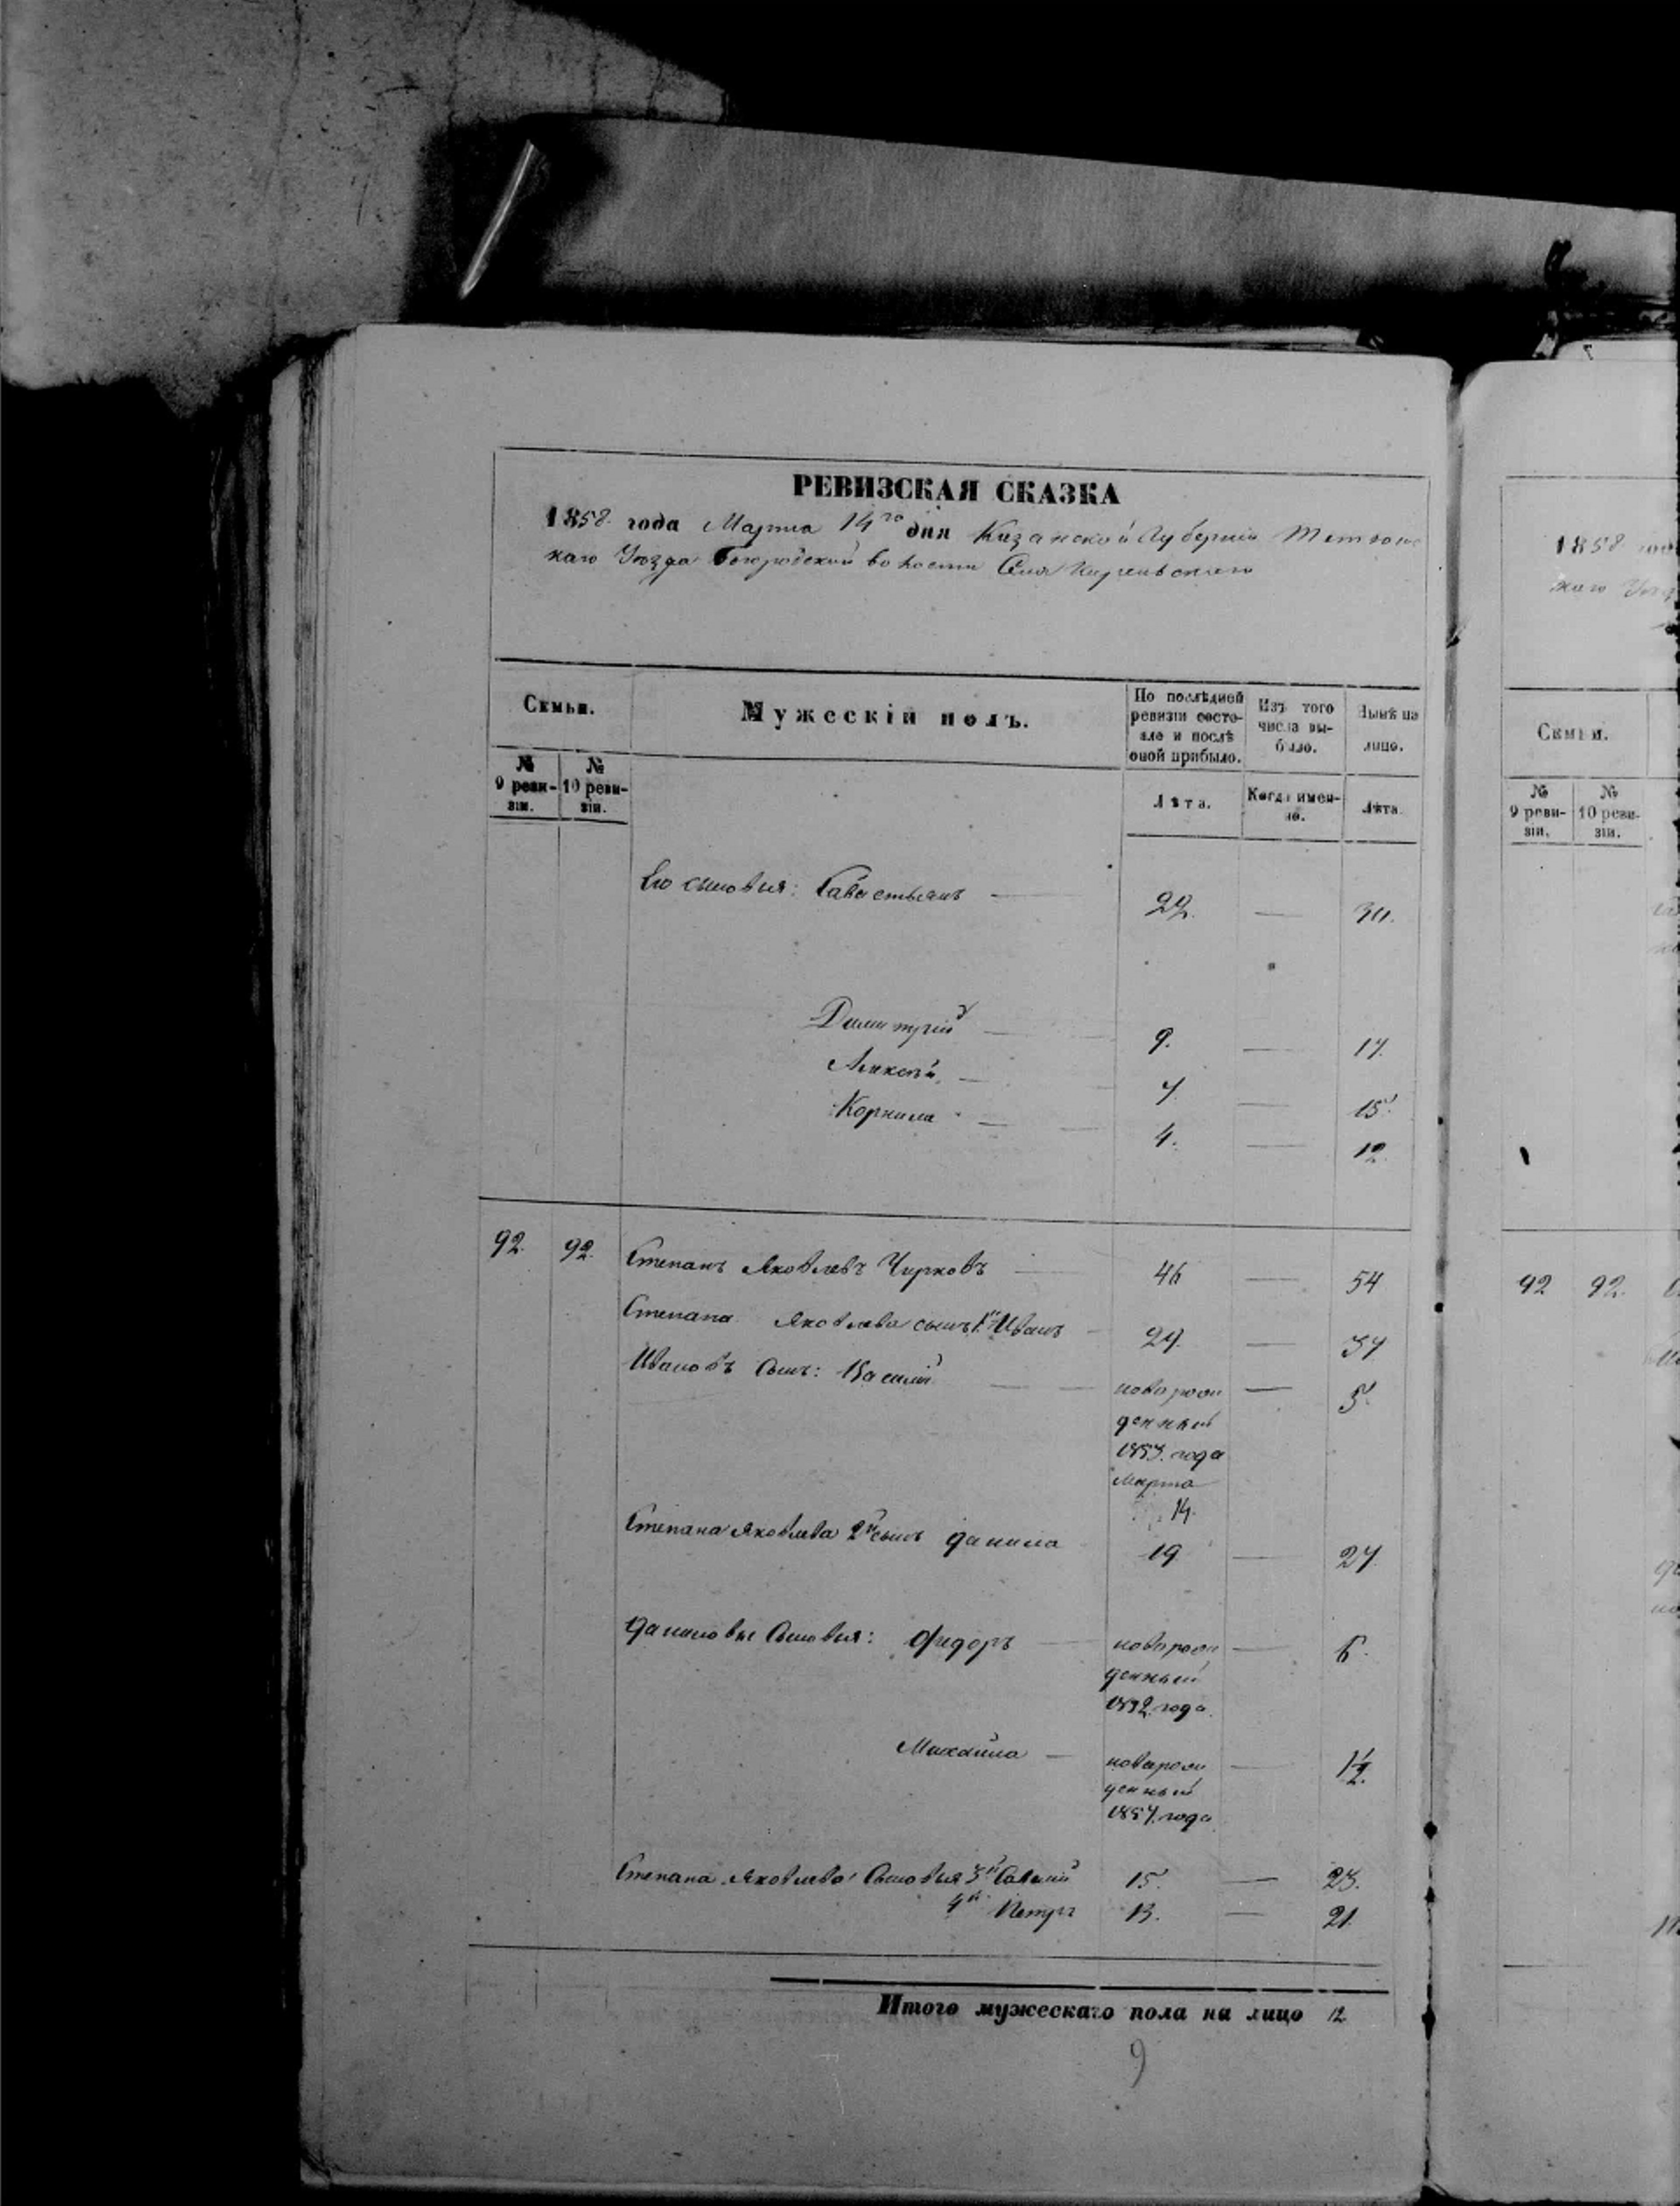 РЕВИЗСКАЯ СКАЗКА
1858. года Марта 14го дня Казанской Губерніи Тетюшс
каго Уѣзда волости Села
Семьи.
Мужескій полъ.
По послѣдней ревизіи состояло и послѣ оной прибыло.
Изъ того числа выбыло.
Нынѣ на лицо.
№ 9 ревизіи.
№ 10 ревизіи.
Лѣта.
Когда именно.
Лѣта.
Его сыновья: Савастьянъ — 22. — 30.
Димитрій — 9. — 17.
Алексѣй — 7 — 15.
Корнила — 4. — 12.
92. 92. Степанъ Яковлевъ Чирковъ — 46 — 54
Степана Яковлева сынъ 1й Иванъ — 29. — 37
Ивановъ сынъ: Василій — новорож — 5.
денный
1853. года
Марта
14.
Степана Яковлева 2й сынъ Данила 19 — 27.
Даниловы сыновья: Федоръ — новорож — 6.
денный
1852 года.
Михайла — новорож — 1½.
денный
1857. года
Степана Яковлева Сыновья 3й Савелій 15. — 23.
4й Петръ 13. — 21.
Итого мужескаго пола на лицо 12
9
1858 года
каго Уѣзд
Семьи.
№ 9 ревизіи.
№ 10 ревизіи.
92 92.